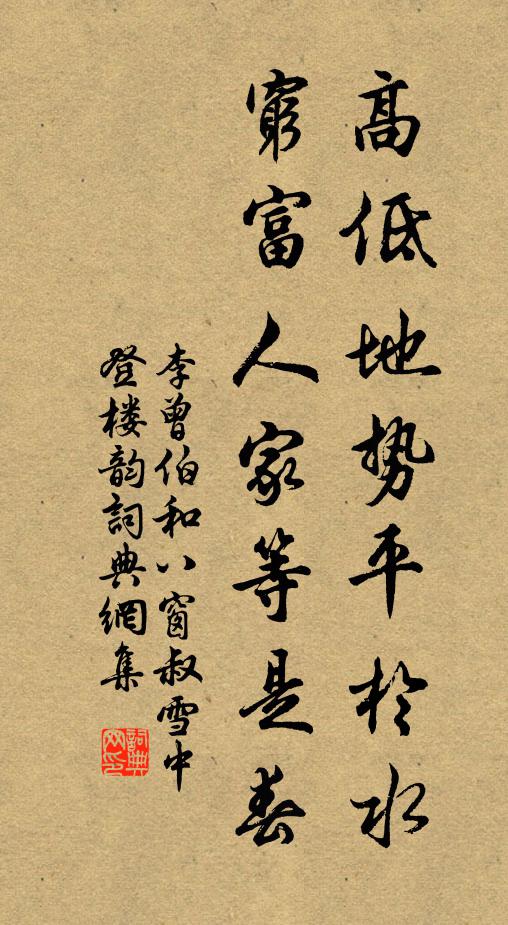 高低地势平於水
窮富人家等是春
李曾伯和八窗叔雪中
登楼韵詞典網集